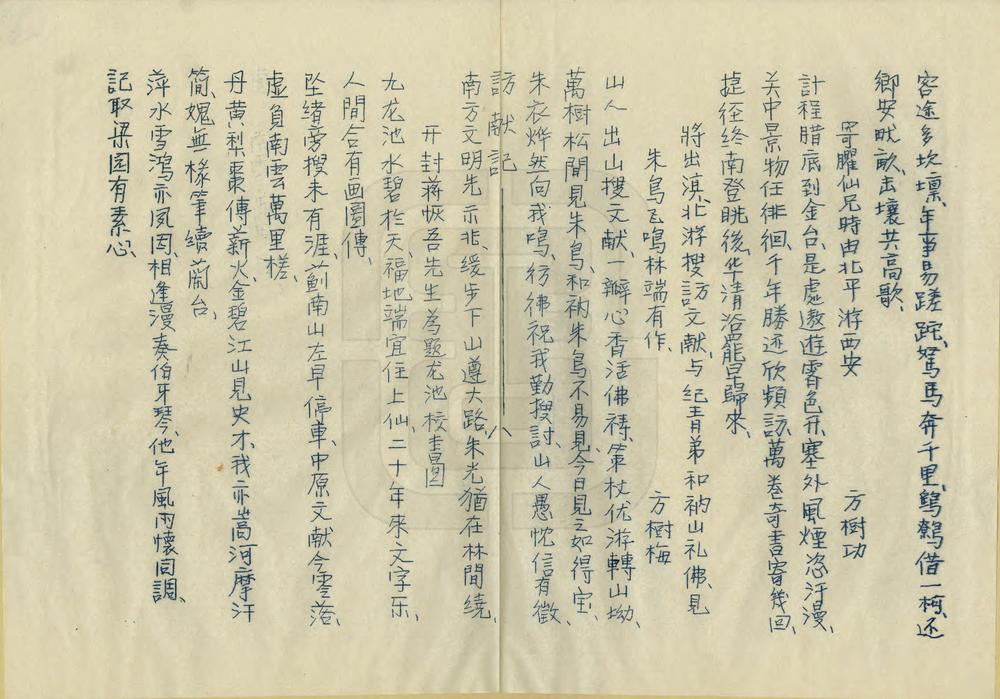 客途多坎壈、年事易蹉跎、駑馬奔千里、鷦鷯借一柯、还
鄉安畎畝、击壤共高歌、
寄臞仙兄時由北平游西安
方樹功
計程腊底到金台、是處遨遊霽色开、塞外風煙恣汗漫、
关中景物任徘徊、千年勝迹欣頻訪、萬卷奇書寄幾回、
捷径终南登眺後、华清浴罷早歸來、
將出滇、北游搜訪文献、与纪青弟和衲山礼佛、見
朱鳥飞鳴林端有作、
方樹梅
山人出山搜文献、一瓣心香活佛祷、策杖优游轉山坳、
萬樹松間見朱鳥、和衲朱鳥不易見、今日見之如得宝、
朱衣烨然向我鳴、彷彿祝我勤搜討、山人愚忱信有徵、
訪献記
南方文明先示兆、缓步下山遵大路、朱光猶在林間繞、
开封蒋恢吾先生為题龙池校書圖
九龙池水碧於天、福地端宜住上仙、二十年來文字乐、
人間合有画圖傳、
坠緒旁搜未有涯、蓟南山左早停車、中原文献今零落、
虚負南雲萬里槎、
丹黄梨棗傳薪火、金碧江山見史才、我亦嵩河摩汗
简、媿無椽筆續蘭台、
萍水雪鴻亦夙因、相逢漫奏伯牙琴、他年風雨懷同調、
記取梁园有素心、